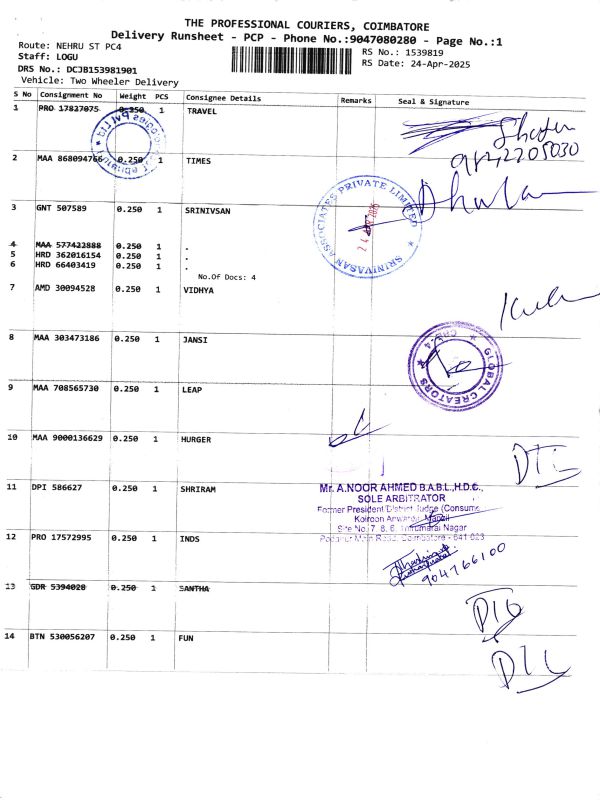 THE PROFESSIONAL COURIERS, COIMBATORE
Delivery Runsheet - PCP - Phone No.:9047080280 - Page No.:1
Route: NEHRU ST PC4
RS No.: 1539819
Staff: LOGU
RS Date: 24-Apr-2025
DRS No.: DCJB153981901
Vehicle: Two Wheeler Delivery
S No Consignment No Weight PCS Consignee Details Remarks Seal & Signature
1 PRO 17827075 0.250 1 TRAVEL
2 MAA 868094766 0.250 1 TIMES
3 GNT 507589 0.250 1 SRINIVSAN
SRINIVASAN ASSOCIATES PRIVATE LIMITED
4 MAA 577422888 0.250 1 .
5 HRD 362016154 0.250 1 .
6 HRD 66403419 0.250 1 .
No.Of Docs: 4
7 AMD 30094528 0.250 1 VIDHYA
8 MAA 303473186 0.250 1 JANSI
GLOBAL CREATORS
CBE-4
9 MAA 708565730 0.250 1 LEAP
10 MAA 9000136629 0.250 1 HURGER
DTL
11 DPI 586627 0.250 1 SHRIRAM
Mr. A.NOOR AHMED B.A.B.L.,H.D.C.,
SOLE ARBITRATOR
Former President District Judge (Consume
Site No. 7, 8, 6, Thirumarai Nagar
Main Road, Coimbatore - 641 023
12 PRO 17572995 0.250 1 INDS
904766100
13 GDR 5394028 0.250 1 SANTHA
14 BTN 530056207 0.250 1 FUN
DTL